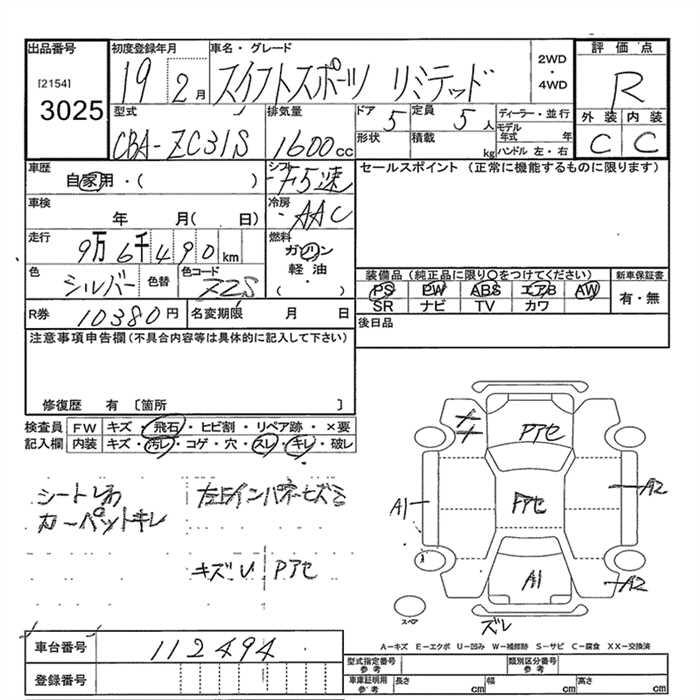 出品番号
[2154]
3025
初度登録年月
19 2月
車名・グレード
スイフトスポーツ リミテッド
2WD
・
4WD
評価点
R
外装 内装
C C
型式
CBA-ZC31S
排気量
1600cc
ドア
5
定員
5人
形状
積載
kg
ディーラー・並行
モデル年式 年
ハンドル 左・右
車歴
自家用・( )
シフト
F5速
セールスポイント (正常に機能するものに限ります)
車検
年 月( 日)
冷房
AAC
走行
9万6千490km
燃料
ガソリン
軽油
・
( )
色
シルバー
色替
色コード
Z2S
装備品(純正品に限り○をつけてください)
PS PW ABS エアB AW
SR ナビ TV カワ
新車保証書
有・無
R券
10380円
名変期限 月 日
後日品
注意事項申告欄(不具合内容等は具体的に記入して下さい)
修復歴 有 〔箇所 〕
検査員
記入欄
FW キズ・飛石・ヒビ割・リペア跡・×要
内装 キズ・汚レ・コゲ・穴・スレ・キレ・破レ
カーペットキレ
キズU Pアセ
Pアセ
Fアセ
A1
A2
A1
A2
スペア
ズレ
A-キズ E-エクボ U-凹み W-補修跡 S-サビ C-腐食 XX-交換済
車台番号
112494
登録番号
型式指定番号
参考
類別区分番号
参考
車庫証明用
参考
長さ cm
幅 cm
高さ cm